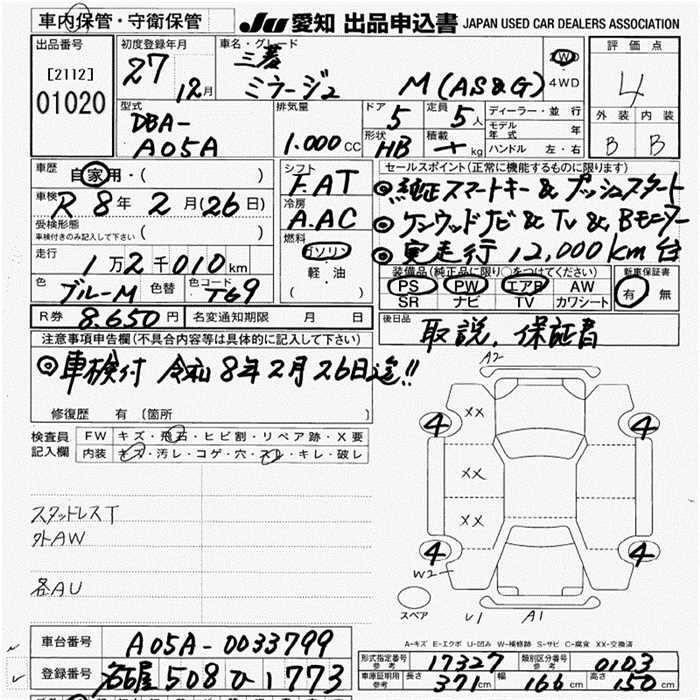 車内保管・守衛保管
JU 愛知 出品申込書 JAPAN USED CAR DEALERS ASSOCIATION
出品番号 [2112] 01020
初度登録年月 27 12月
車名・グレード 三菱 ミラージュ M(AS&G)
2WD ・ 4WD
評価点 4
外装 B 内装 B
型式 DBA-A05A
排気量 1.000 CC
ドア 5 定員 5人
形状 HB 積載 kg
ディーラー・並行
モデル年式 年
ハンドル 左・右
車歴 自家用・( )
車検 R 8年 2月(26日)
受検形態 車検付きのみ記入して下さい ( )
走行 1万2千010km
色 ブルーM 色替 色コード T69
R券 8.650円 名変通知期限 月 日
シフト F.AT
冷房 A.AC
燃料 ガソリン 軽・油 ( )
セールスポイント(正常に機能するものに限ります)
◎純正スマートキー&プッシュスタート
◎ケンウッドナビ&TV&Bモニター
◎実走行12,000km台
装備品(純正品に限り○をつけてください)
PS PW エアB AW
SR ナビ TV カワシート
新車保証書 有・無
後日品 取説、保証書
注意事項申告欄(不具合内容等は具体的に記入して下さい)
◎車検付 令和8年2月26日迄!!
修復歴 有 [箇所 ]
検査員記入欄
FW キズ・飛石・ヒビ割・リペア跡・X要
内装 キズ・汚レ・コゲ・穴・スレ・キレ・破レ
スタッドレスT
外AW
各AU
A2
4 XX 4
XX
XX
4 4
W2
スペア
U1 A1
A-キズ E-エクボ U-凹み W-補修跡 S-サビ C-腐食 XX-交換済
車台番号 A05A-0033799
登録番号 名古屋 508 ひ 1773
形式指定番号 参考 17327 類別区分番号 参考 0103
車庫証明用 参考 長さ 371cm 幅 166cm 高さ 150cm